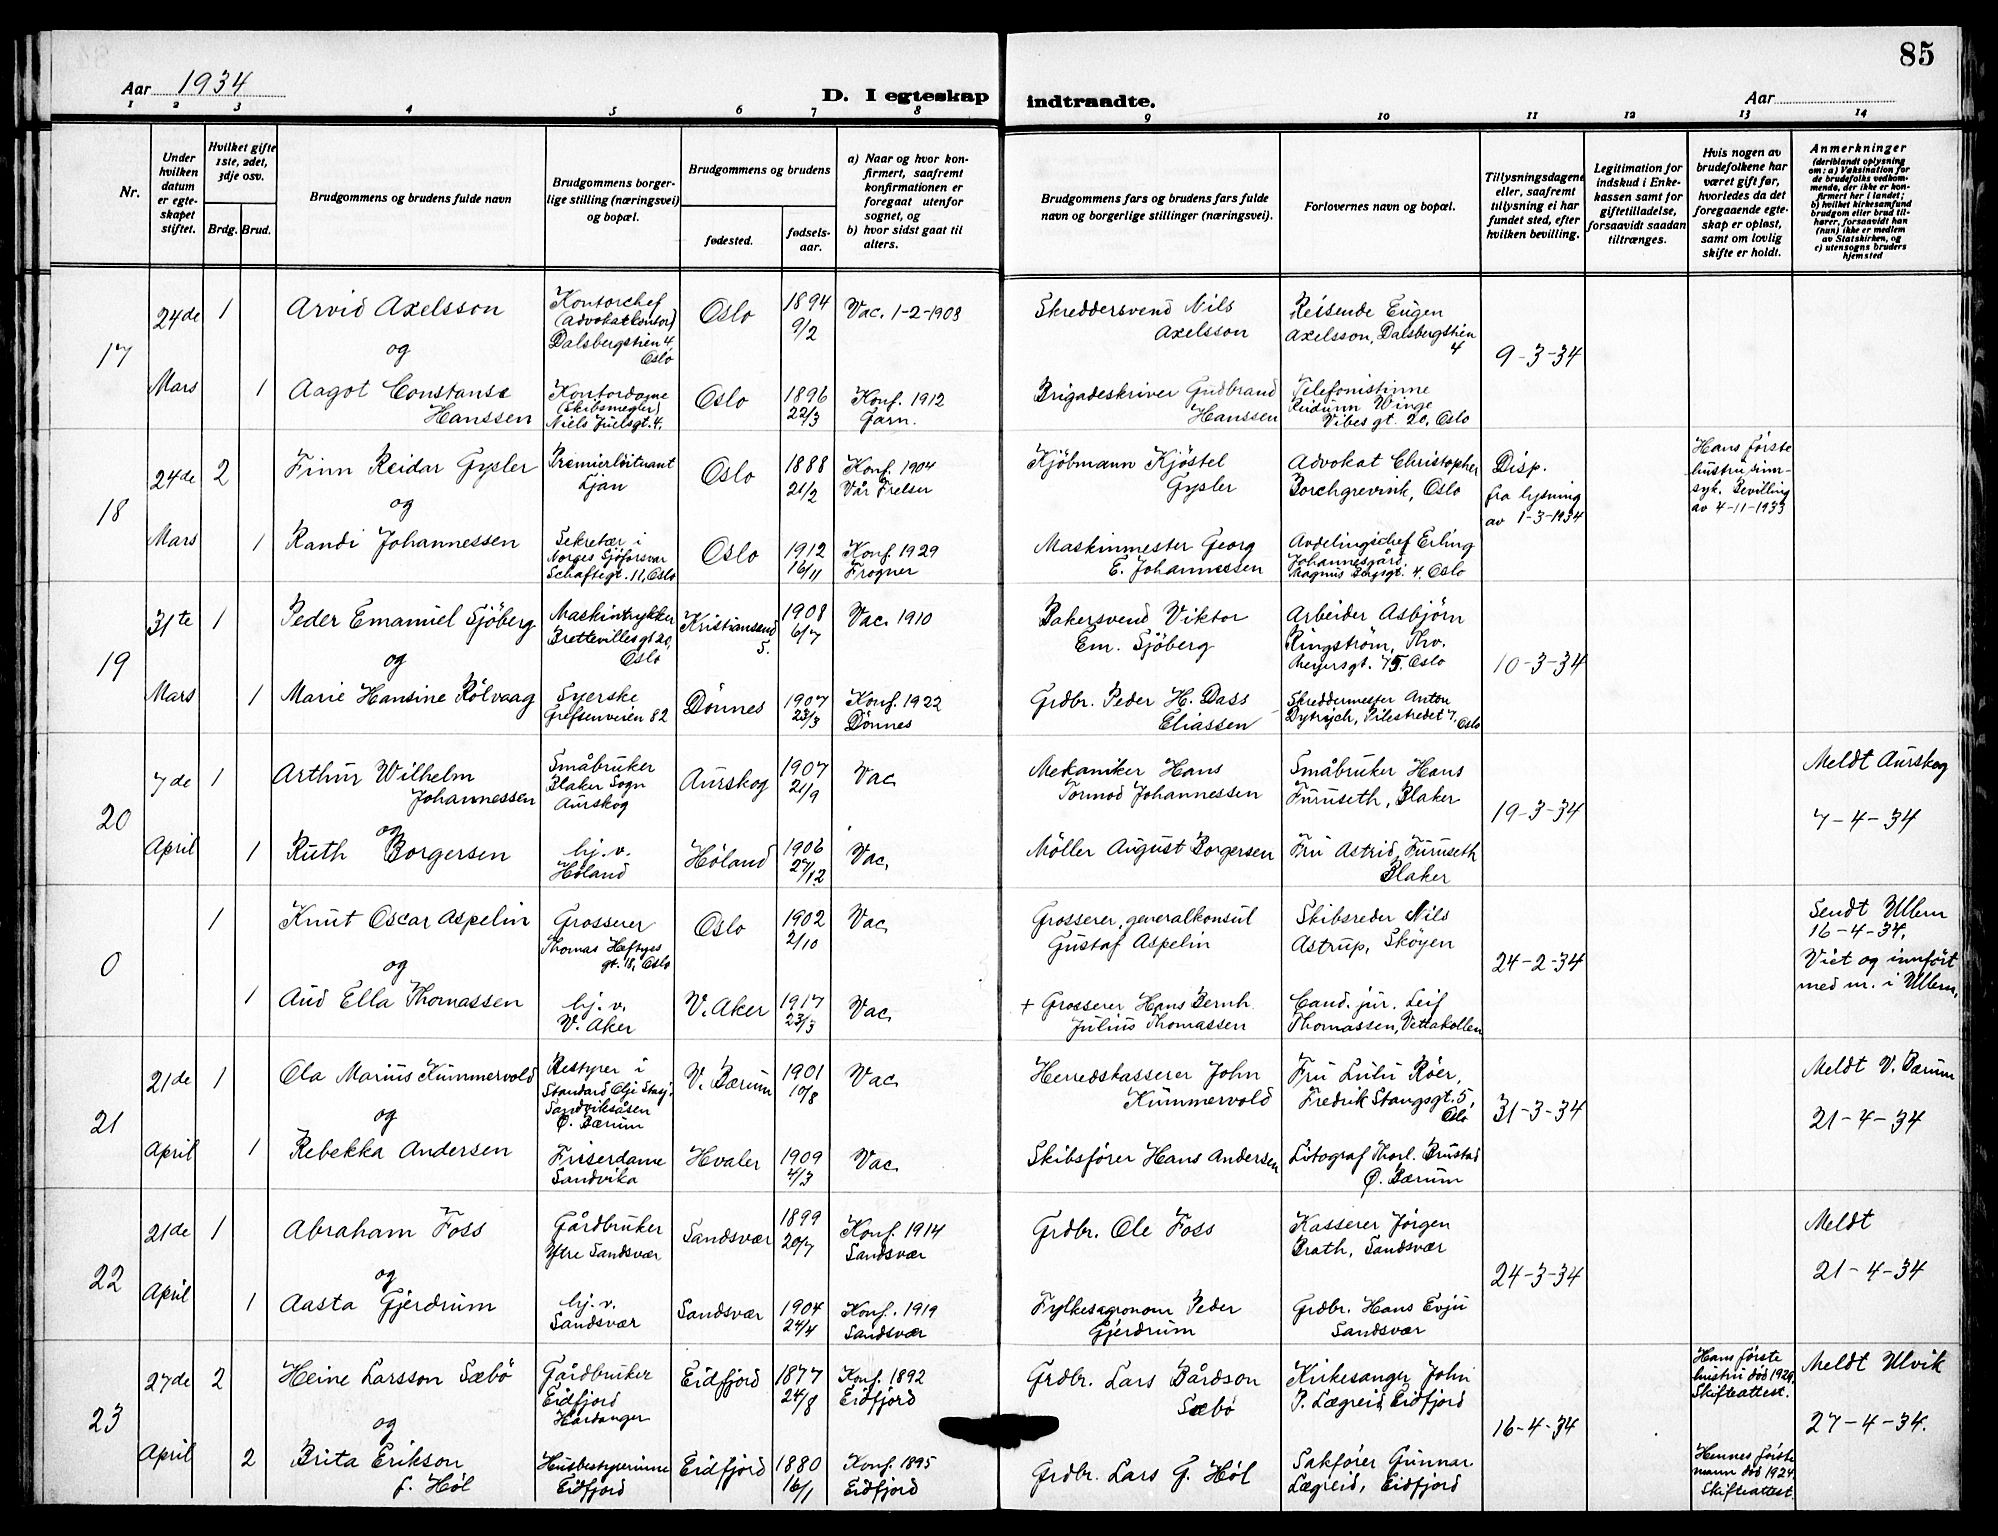 85
Aar 1934
D. I egteskap indtraadte.
Aar
1 2 3 4 5 6 7 8 9 10 11 12 13 14
Nr.
Under hvilken datum er egte-skapet stiftet.
Hvilket gifte 1ste, 2det, 3dje osv.
Brdg. Brud.
Brudgommens og brudens fulde navn
Brudgommens borger-lige stilling (næringsvei) og bopæl.
Brudgommens og brudens
fødested.
fødsels-aar.
a) Naar og hvor kon-firmert, saafremt konfirmationen er foregaat utenfor sognet, og
b) hvor sidst gaat til alters.
Brudgommens fars og brudens fars fulde navn og borgerlige stillinger (næringsvei).
Forlovernes navn og bopæl.
Tillysningsdagene eller, saafremt tillysning ei har fundet sted, efter hvilken bevilling.
Legitimation for indskud i Enke-kassen samt for giftetilladelse, forsaavidt saadan tiltrænges.
Hvis nogen av brudefolkene har været gift før, hvorledes da det foregaaende egte-skap er opløst, samt om lovlig skifte er holdt.
Anmerkninger
(deriblandt oplysning om: a) Vaksination for de brudefolks vedkom-mende, der ikke er kon-firmert her i landet;
b) hvilket kirkesamfund brudgom eller brud til-hører, forsaavidt han (hun) ikke er medlem av Statskirken, og
c) utensogns bruders hjemsted
17
24de Mars
1 Arvid Axelsson
Kontorchef (Advokatkontor) Dalsbergstien 4, Oslo
Oslo 1894 9/2 Vac. 1-2-1908
Skreddersvend Nils Axelsson
Reisende Eugen Axelsson, Dalsbergstien 4
9-3-34
og
1 Aagot Constanse Hanssen
Kontordame (Skibsmegler) Niels Juelsgt. 4.
Oslo 1896 22/3 Konf. 1912 Garn.
Brigadeskriver Gudbrand Hanssen
Telefonistinne Reidunn Winge Vibesgt. 20, Oslo
18
24de Mars
2 Finn Reidar Gysler
Premierløitnant Ljan
Oslo 1888 21/2 Konf. 1904 Vår Frelser
Kjøbmann Kjøstel Gysler
Advokat Christopher Borchgrevink, Oslo
Disp. fra lysning av 1-3-1934
Hans første hustru sinn-syk. Bevilling av 4-11-1933
og
1 Randi Johannessen
Sekretær i Norges Sjøforsvar Schaftegt. 11, Oslo
Oslo 1912 16/11 Konf. 1929 Frogner
Maskinmester Georg E. Johannessen
Avdelingschef Erling Johannesgård, Magnus Bergsgt. 4, Oslo
19
31te Mars
1 Peder Emanuel Sjøberg
Maskintrykker Brettevillesgt 20, Oslo
Kristiansand S. 1908 6/7 Vac. 1910
Bakersvend Viktor Em. Sjøberg
Arbeider Asbjørn Ringstrøm, Thv. Meyersgt. 75, Oslo
10-3-34
og
1 Marie Hansine Rølvaag
Syerske Grefsenveien 82
Dønnes 1907 23/3 Konf. 1922 Dønnes
Grdbr. Peder H. Dass Eliassen
Skreddermester Anton Dytrych, Pilestredet 7, Oslo
20
7de April
1 Arthur Wilhelm Johannessen
Småbruker Blaker Sogn Aurskog
Aurskog 1907 21/9 Vac.
Mekaniker Hans Tormod Johannessen
Småbruker Hans Furuseth, Blaker
19-3-34
Meldt Aurskog 7-4-34
og
1 Ruth Borgersen
hj. v. Høland
Høland 1906 27/12 Vac.
Møller August Borgersen
Fru Astrid Furuseth Blaker
0
1 Knut Oscar Aspelin
Grosserer Thomas Heftyes gt. 18, Oslo
Oslo 1902 2/10 Vac.
Grosserer, generalkonsul Gustaf Aspelin
Skibsreder Nils Astrup, Skøyen
24-2-34
Sendt Ullern 16-4-34. Viet og innført med nr. i Ullern.
og
1 Aud Ella Thomassen
hj. v. V. Aker
V. Aker 1917 23/3 Vac.
+ Grosserer Hans Bernh. Julius Thomassen
Cand. jur. Leif Thomassen, Vettakollen
21
21de April
1 Ola Marius Kummervold
Bestyrer i Standard Olje Stasj. Sandviksåsen Ø. Bærum
V. Bærum 1901 10/8 Vac.
Herredskasserer John Kummervold
Fru Lulu Røer, Fredrik Stangsgt. 5, Oslo
31-3-34
Meldt V. Bærum 21-4-34
og
1 Rebekka Andersen
Friserdame Sandvika
Hvaler 1909 4/3 Vac.
Skibsfører Hans Andersen
Litograf Thorl. Brustad Ø. Bærum
22
21de April
1 Abraham Foss
Gårdbruker Ytre Sandsvær
Sandsvær 1899 20/7 Konf. 1914 Sandsvær
Grdbr. Ole Foss
Kasserer Jørgen Brath, Sandsvær
24-3-34
Meldt 21-4-34
og
1 Aasta Gjerdrum
hj. v. Sandsvær
Sandsvær 1904 24/4 Konf. 1919 Sandsvær
Fylkesagronom Peder Gjerdrum
Grdbr. Hans Evju Sandsvær
23
27de April
2 Heine Larsson Sæbø
Gårdbruker Eidfjord Hardanger
Eidfjord 1877 24/8 Konf. 1892 Eidfjord
Grdbr. Lars Bårdson Sæbø
Kirkesanger John P. Lægreid, Eidfjord
16-4-34
Hans første hustru død 1926 Skifteattest.
Meldt Ulvik 27-4-34.
og
2 Brita Erikson f. Høl
Husbestyrerinne Eidfjord
Eidfjord 1880 16/1 Konf. 1895 Eidfjord
Grdbr. Lars G. Høl
Sakfører Gunnar Lægreid, Eidfjord
Hennes første mann død 1924. Skifteattest.